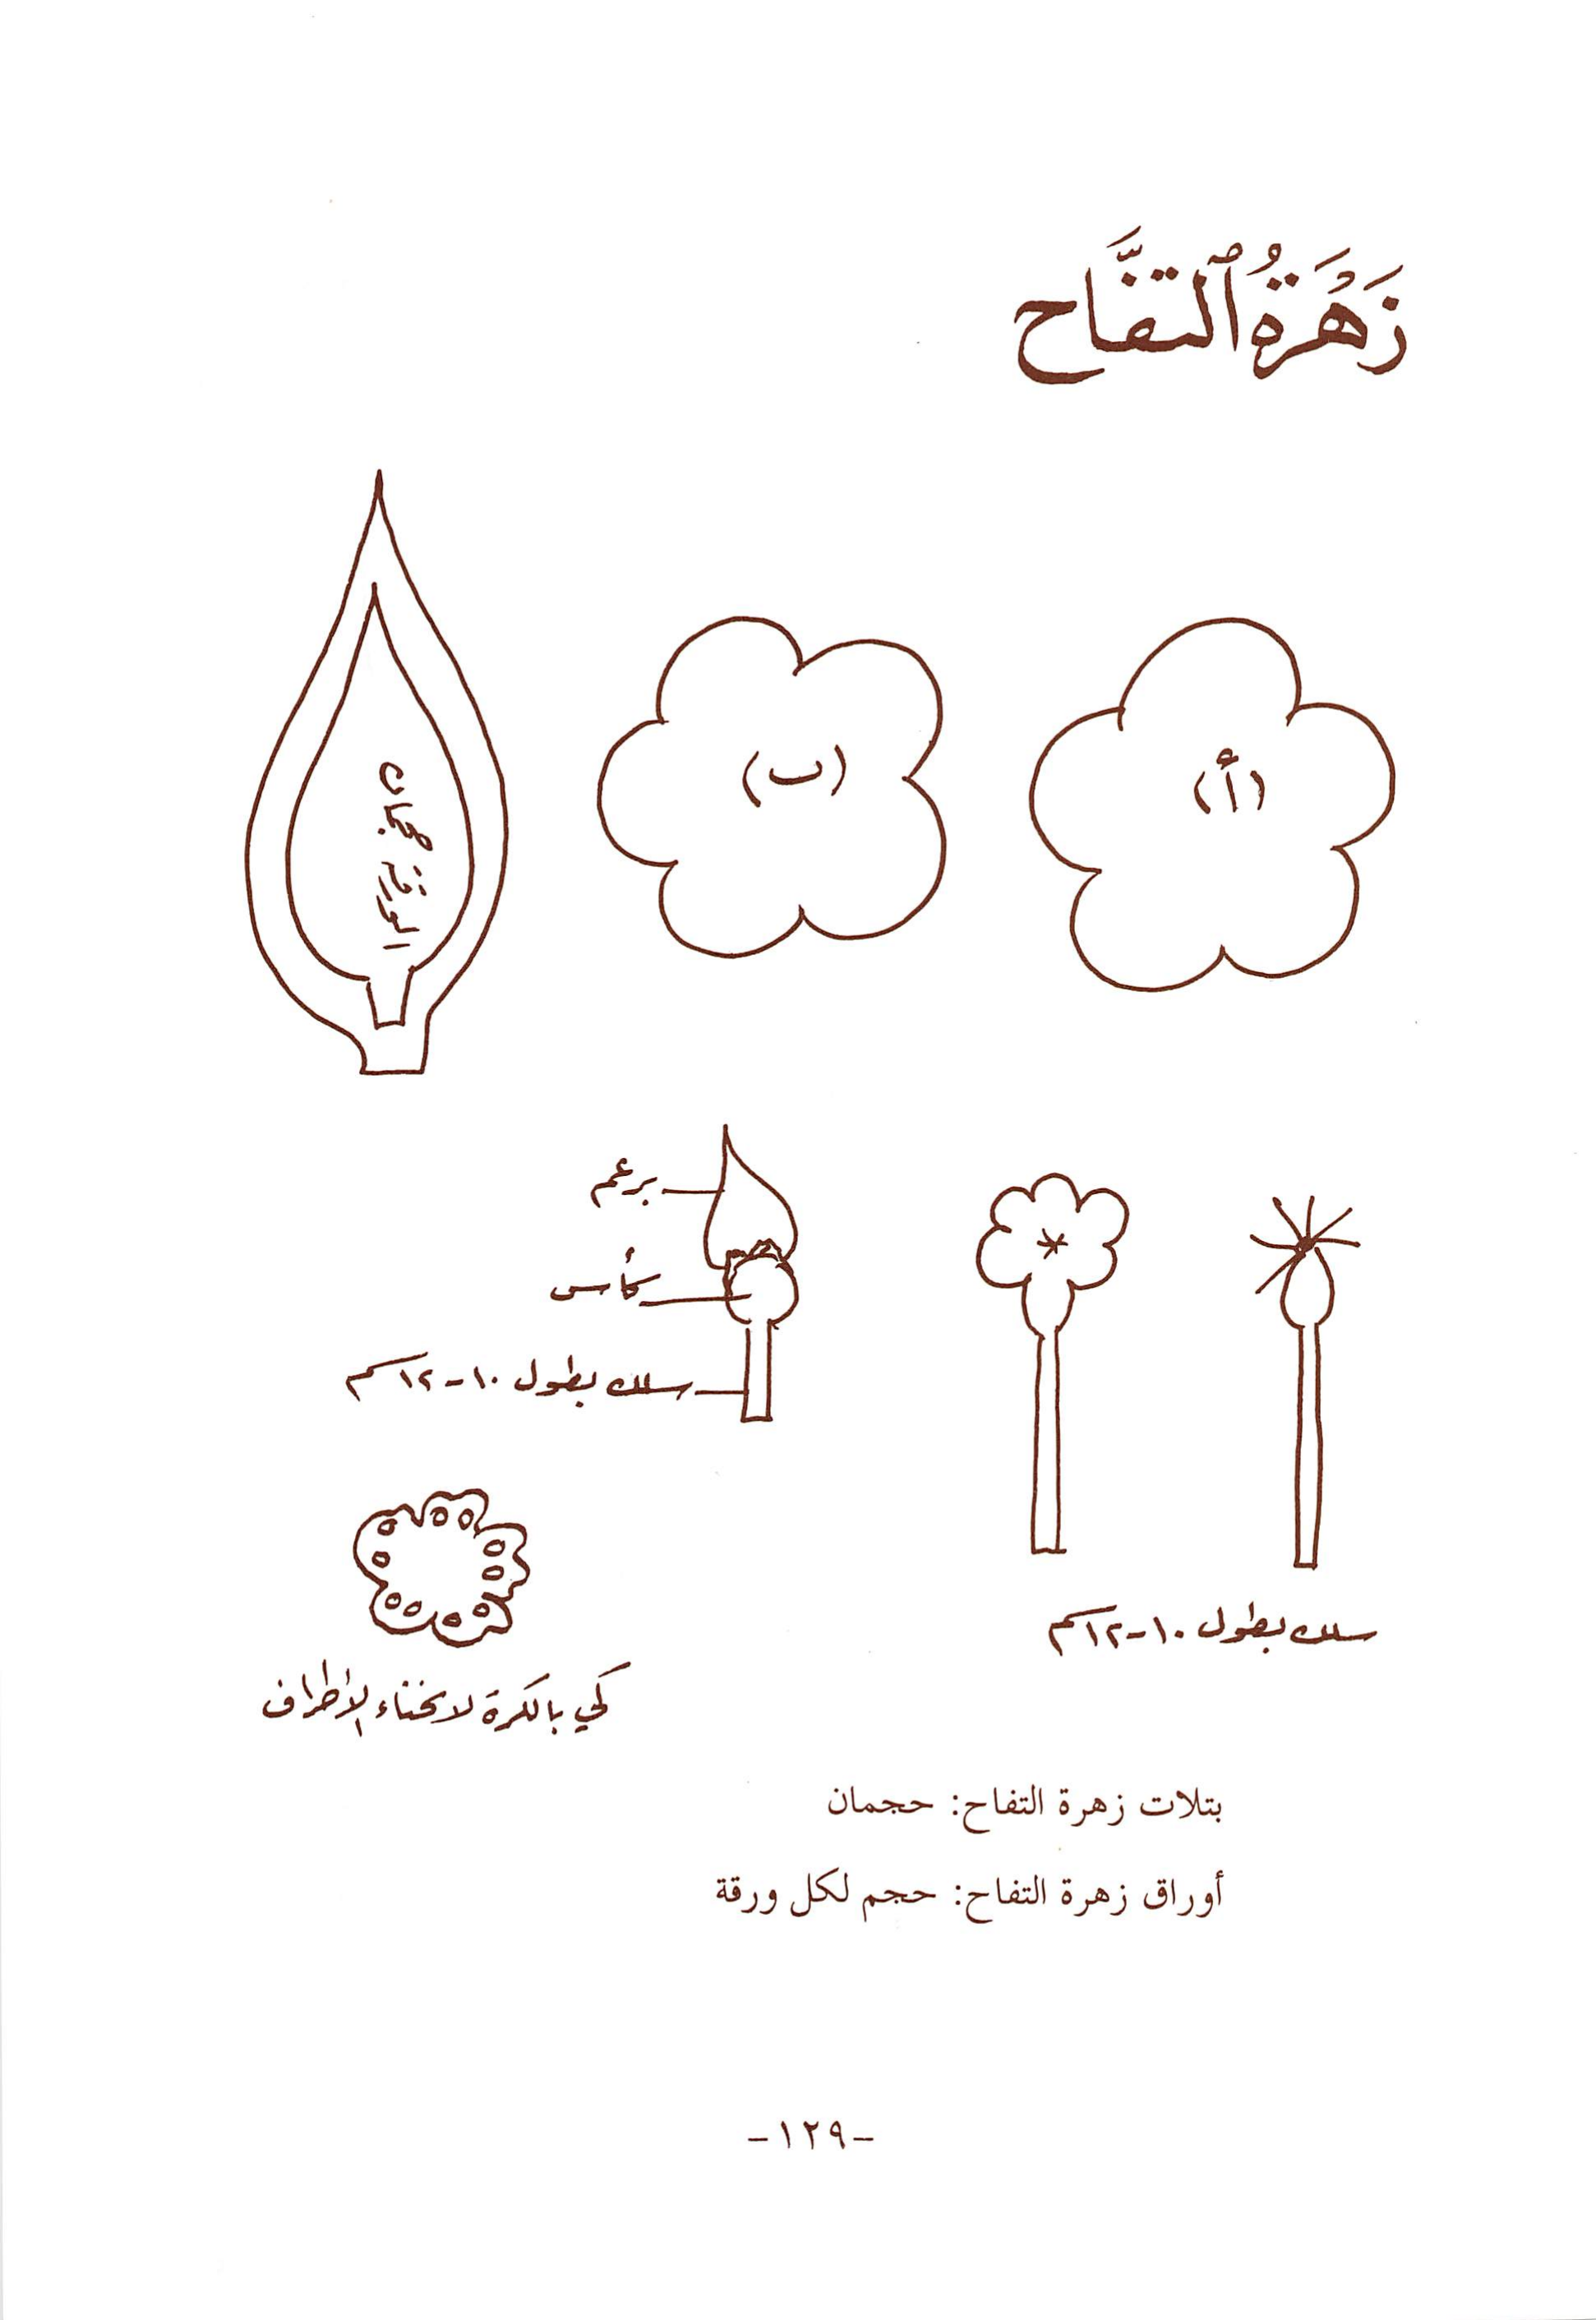 زَهْرَةُ ٱلتفَّاح
(أ)
(ب)
الورق حجمان
برعم
كأس
سلك بطول ١٠-١٢سم
سلك بطول ١٠-١٢سم
كي بالكرة لانحناء الأطراف
بتلات زهرة التفاح: حجمان
أوراق زهرة التفاح: حجم لكل ورقة
-١٢٩-